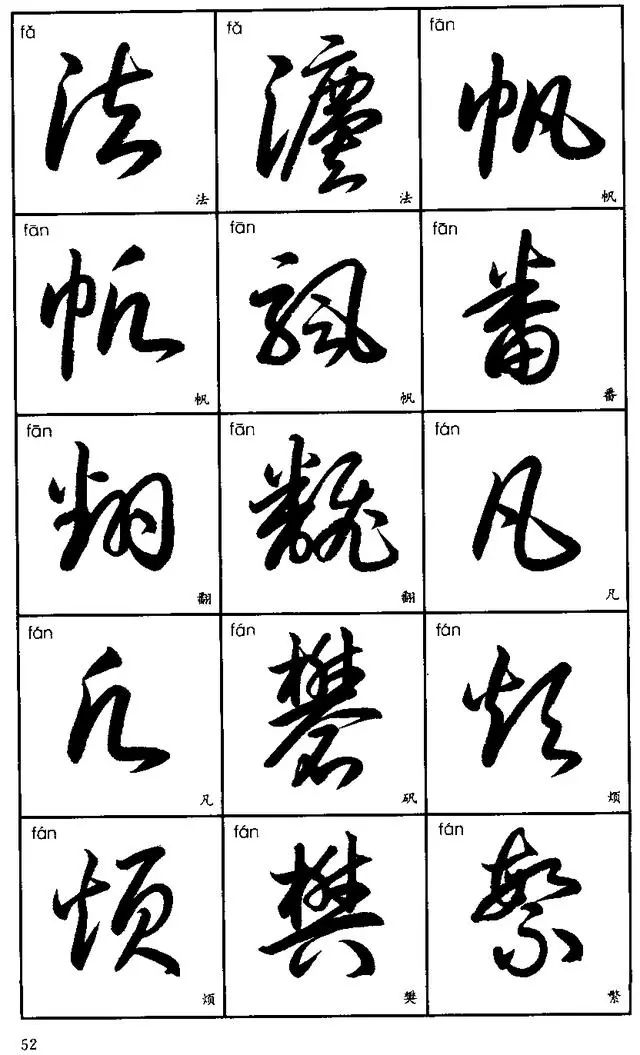 fǎ 法 法
fǎ 灋 法
fān 帆 帆
fān 帆 帆
fān 颿 帆
fān 番 番
fān 翻 翻
fān 飜 翻
fán 凡 凡
fán 凡 凡
fán 礬 矾
fán 烦 烦
fán 烦 烦
fán 樊 樊
fán 繁 繁
52